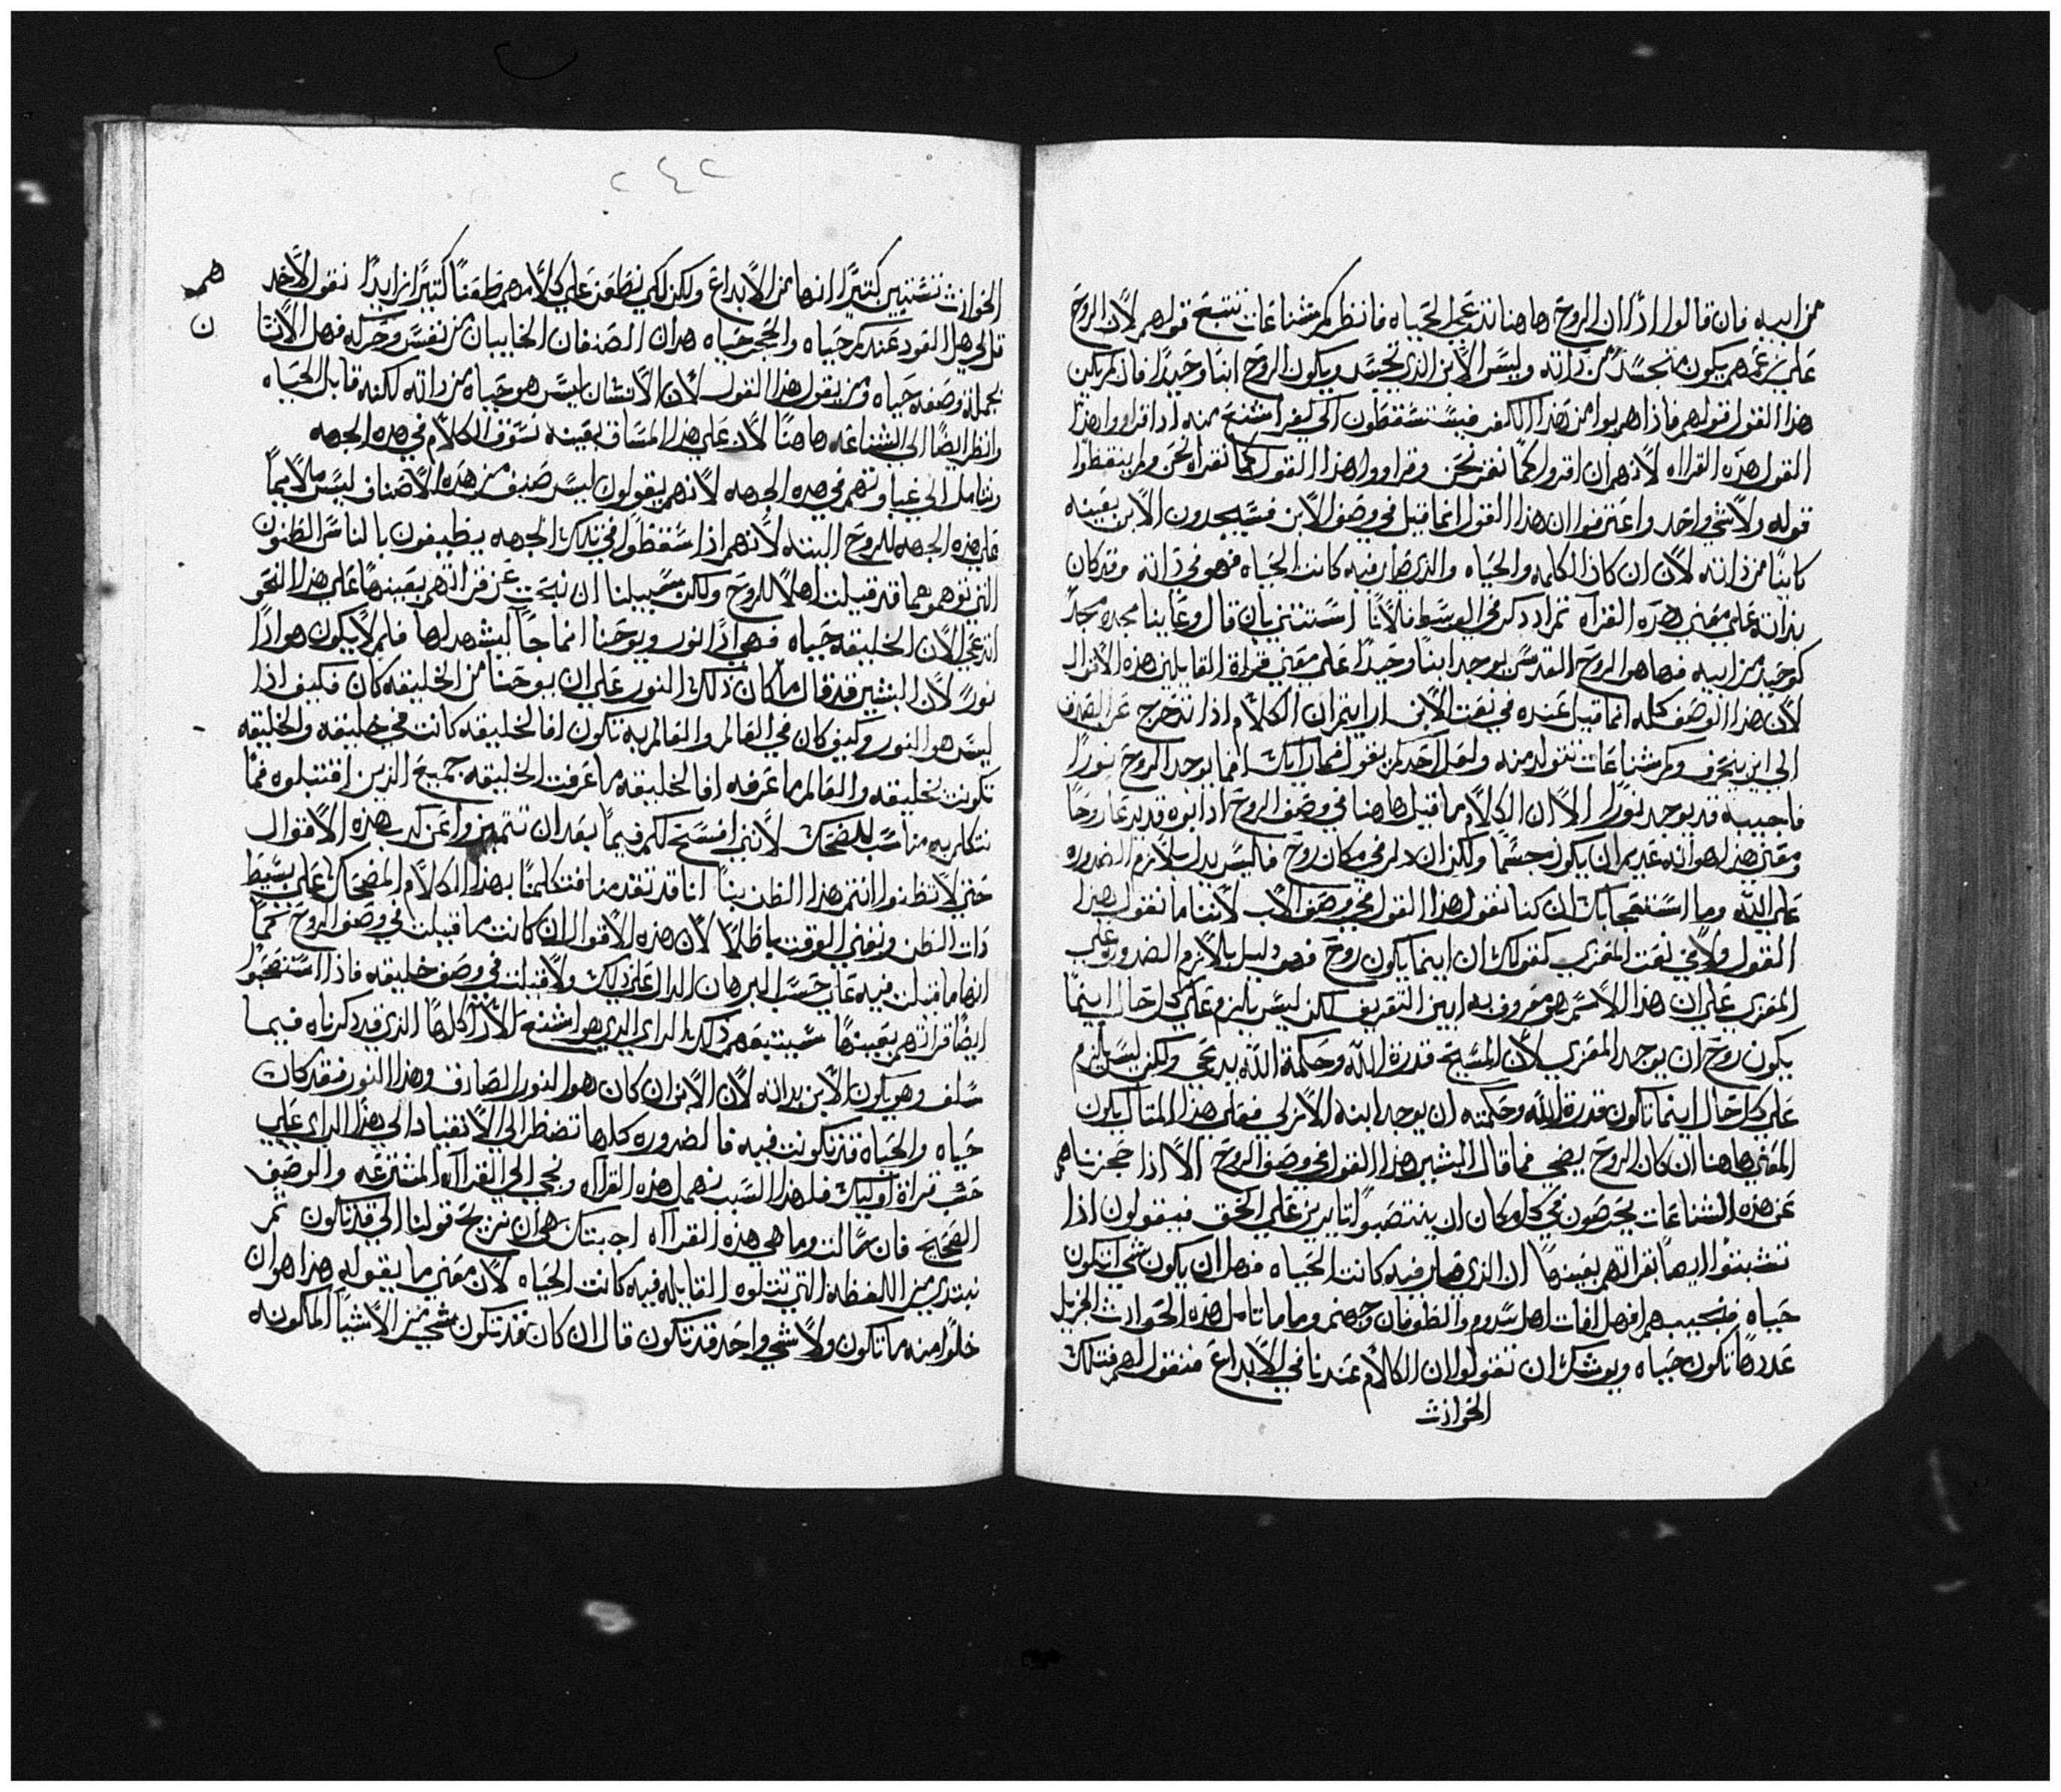 من ابيه فان قالوا اذا ان الروح هاهنا تدعي الحياه فانظر كم شناعات تتبع قولهم لان الروح
علي زعمهم يكون متجسد من ذاته وليس الابن الذي تجسد ويكون الروح ابنا وحيدا فان لم يكن
هذا القول قولهم فاذا هربوا من هذا الكفر فيستسقطون الي كفر اشنع منه اذا قراوا هذا
القول هذه القراه لانهم ان اقروا كما نقر نحن وقراوا هذا القول كما نقراه نحن ولم ينقطوا
قوله ولا شي واحد واعترفوا ان هذا القول انما قيل في وصف الابن فسيجدون الابن بعينه
كاينا من ذاته لان ان كان الكلمه والحياه والذي صار فيه كانت الحياه فهو في ذاته وقد كان
بذاته علي معني هذه القراه ثم اذ ذكر في الوسط فلانا استثني بان قال وعاينا مجده مجد
كوحيد من ابيه فها هوا الروح القدس يوجد ابنا وحيدا علي معني قراة القايلين هذه الاقوال
لان هذا الوصف كله انما قيل عنده في نعت الابن ارايتم ان الكلام اذا تدحرج عن الصدق
الي اين ينحرف وكم شناعات تتولد منه ولعل احدكم يقول فما رايك افما يوجد الروح نورا
فاجيبه قد يوجد نورا الا ان الكلام ما قيل هاهنا في وصف الروح اذ ابوه قد يدعا روحا
ومعني هذا هو انه عديم ان يكون جسما ولكن ان دلم في مكان روح فليس يدل بلازم الضروره
علي الله وما استعجابك ان كنا نقول هذا القول في وصف الاب لاننا ما نقول هذا
القول ولا في نعت المعزي كقولك ان اينما يكون روح فهو دليل بلازم الضروره علي
المعزي علي ان هذا الاسم هو معروف به ابين التعريف لكن ليس يلزم علي كل حال اينما
يكون روح ان يوجد المعزي لان المسيح قدرة الله وحكمة الله يدعي ولكن ليس يلزم
علي كل حال اينما تكون قدرة الله وحكمته ان يوجد ابنه الازلي فعلي هذا المثال يكون
المعني هاهنا ان كان الروح يضي فما قال البشير هذا القول في وصف الروح الا اذا حجزناهم
عن هذه الشناعات يحرصون في كل مكان ان ينتصبوا ثايرين علي الحق فيقولون اذا
تشبثوا ايضا بقراتهم بعينها ان الذي صار فيه كانت الحياه فهل ان يكون شي اتكون
حياه فنجيبهم افهل افات اهل سدوم والطوفان وجهنم وما ماثل هذه الحوادث الجزيل
عددها تكون حياه ويوشك ان تقولوا ان الكلام عندنا في الابداع فنقول لهم فتلك
الحوادث
٢٤٢
الحوادث تستبين كثيرا انها من الابداع ولكن لكي نطعن علي كلامهم طعنا كثيرا زايدا نقول لاحد
هم
قل لي هل العود عندكم حياه والحجر حياه هذان الصنفان الخايبان من نفس وحركه فهل الانسا
ن
بجملة وصفه حياه ومن يقول هذا القول لان الانسان ليس هو حياه من ذاته لكنه قابل الحياه
وانظر ايضا الي الشناعه هاهنا لان علي هذا المساق بعينه نسوق الكلام في هذه الجهه
وتتامل الي غباوتهم في هذه الجهه لانهم يقولون ليس صنف من هذه الاصناف ليس ملايما
علي هذه الجهه للروح البته لانهم اذا سقطوا في تلك الجهه يطيفون بالناس الظنون
التي توهموها قد قيلت اهلا للروح ولكن سبيلنا ان نبحث عن قراتهم بعينها علي هذا النحو
اتدعي الان الخليقه حياه فهي اذا نور ويوحنا انما جا ليشهد لها فلم لا يكون هو اذا
نورا لان البشير قد قال ما كان ذلك النور علي ان يوحنا من الخليقه كان فكيف اذا
ليس هو النور وكيف كان في العالم والعالم به تكون افالخليقه كانت في خليقه والخليقه
تكونت بخليقه والعالم ما عرفه افالخليقه ما عرفت الخليقه جميع الذين اقتبلوه فما
نتكلم به مناسب للضحك لانني افسح لكم فيما بعد ان نتميز وامعن كذب هذه الاقوال
حتي لا تظنوا انتم هذا الظن بنا اننا قد تقدمنا فتكلمنا بهذا الكلام المضحك علي بسيط
ذات الظن ونفني الوقت باطلا لان هذه الاقوال ان كانت ما قيلت في وصف الروح كما
انها ما قيلت فيه علي حسب البرهان الدال علي ذلك ولا قيلت في وصف خليقه فاذا استنصبوا
ايضا قراتهم بعينها سيتبعهم ذلك الراي الذي هو اشنع الارا كلها الذي قد ذكرناه فيما
سلف وهو تكون الابن بذاته لان الابن ان كان هو النور الصادق وهذا النور فقد كان
حياه والحياه قد تكونت فيه فالضروره كلها تضطر الي الانقياد الي هذا الراي علي
حسب قراة اوليك فلهذا السبب نهمل هذه القراه ونجي الي القراه المشترعه والوصف
الصحيح فان سالت وما هي هذه القراه اجبتك هي ان نريح قولنا الي قد تكون ثم
نبتدي من اللفظه التي تتلوه القايله فيه كانت الحياه لان معني ما يقوله هذا هو ان
خلوا منه ما تكون ولا شي واحد قد تكون قال ان كان قد تكون شي من الاشيا المكونه